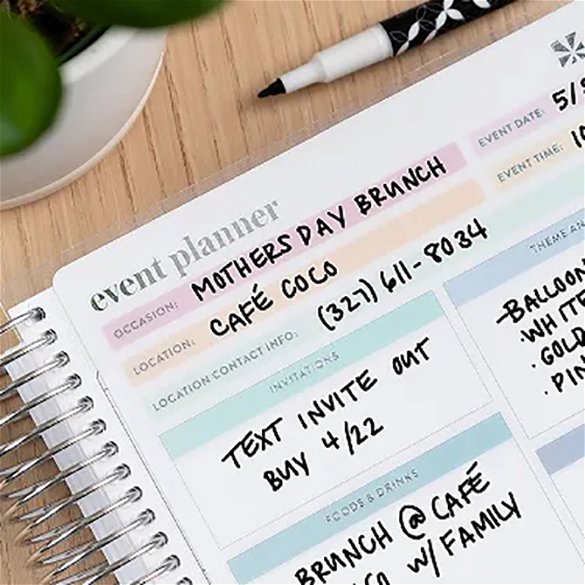 event planner
OCCASION: MOTHERS DAY BRUNCH
EVENT DATE: 5/
LOCATION: CAFÉ COCO
EVENT TIME:
LOCATION CONTACT INFO: (327) 611-8034
INVITATIONS
TEXT INVITE OUT
BUY 4/22
THEME AN
BALLOON
WHITE
GOLD
PIN
FOODS & DRINKS
BRUNCH @ CAFÉ
W/ FAMILY